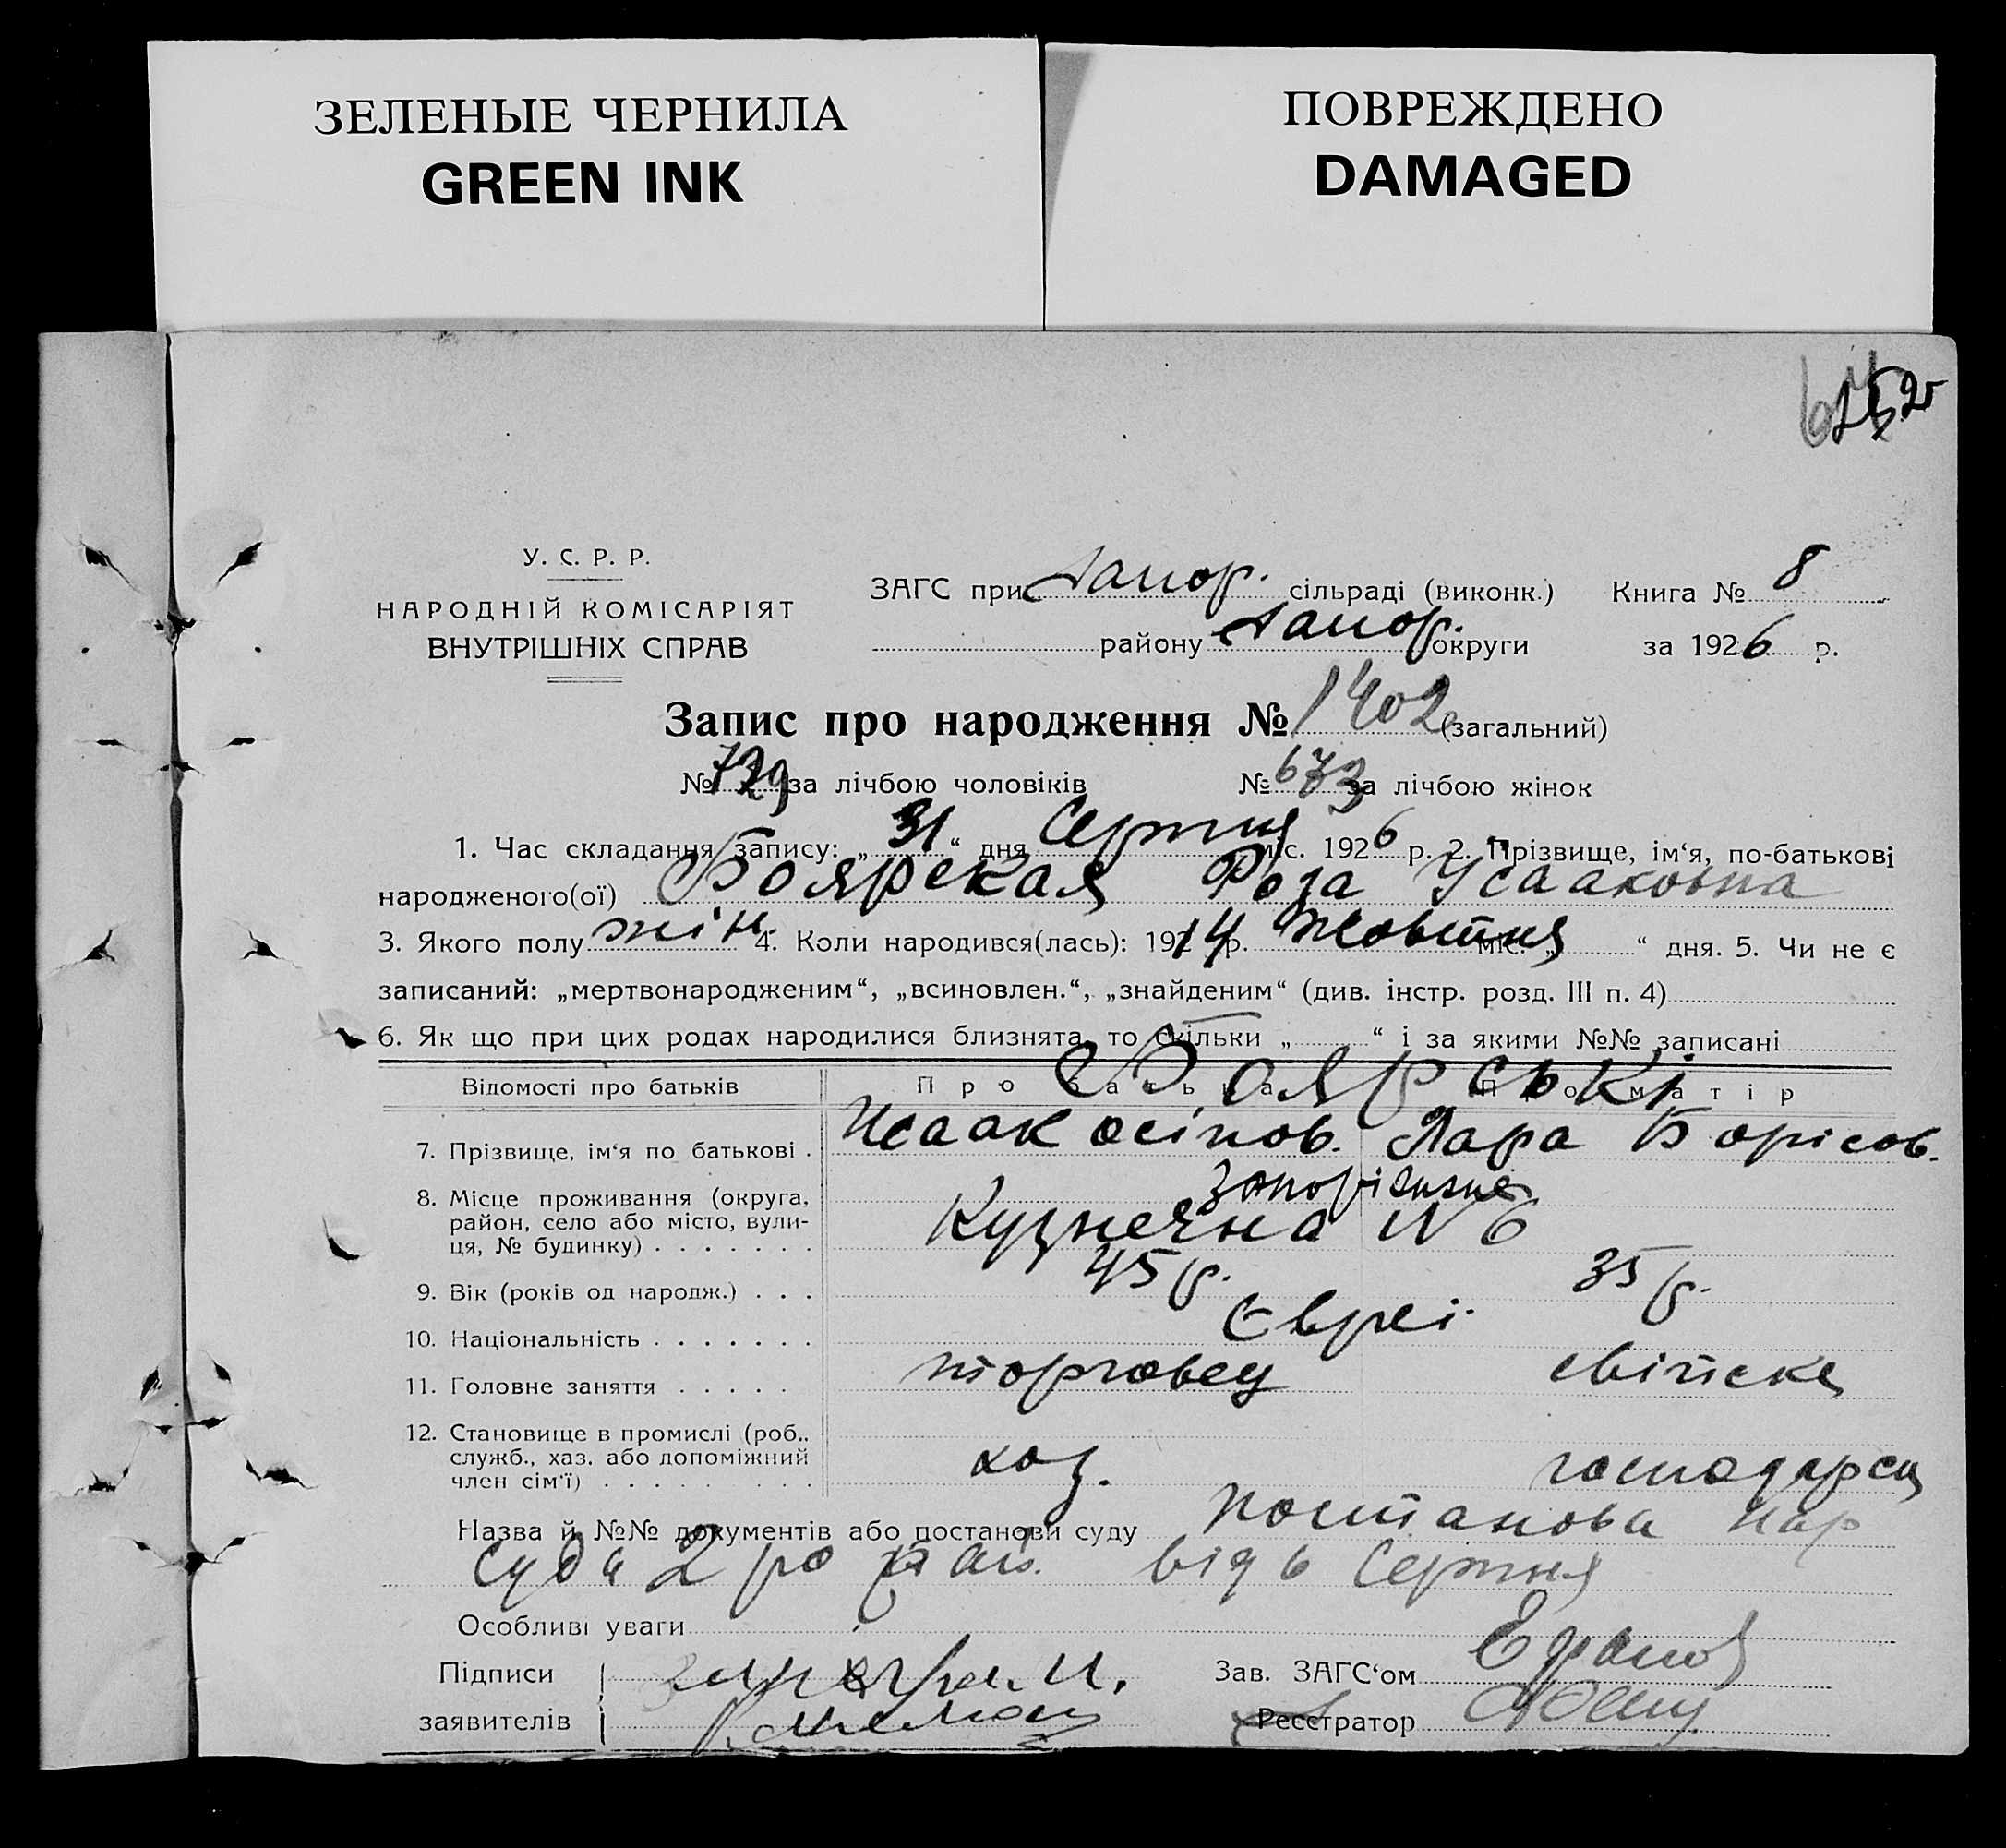 ЗЕЛЕНЫЕ ЧЕРНИЛА
GREEN INK
ПОВРЕЖДЕНО
DAMAGED
У. С. Р. Р.
НАРОДНІЙ КОМІСАРІЯТ
ВНУТРІШНІХ СПРАВ
ЗАГС при Запор. сільраді (виконк.) Книга № 8
району Запор. округи за 1926 р.
Запис про народження № 1402 (загальний)
№ 729 за лічбою чоловіків № 673 за лічбою жінок
1. Час складання запису: „31“ дня Серпня міс. 1926 р. 2. Прізвище, ім‘я, по-батькові
народженого(ої) Боярская Роза Исааковна
3. Якого полу жін. 4. Коли народився(лась): 1914 р. Жовтня міс. „ “ дня. 5. Чи не є
записаний: „мертвонародженим“, „всиновлен.“, „знайденим“ (див. інстр. розд. III п. 4)
6. Як що при цих родах народилися близнята, то скільки „ “ і за якими №№ записані
Відомості про батьків Про батька Про матір
Боярські
7. Прізвище, ім‘я по батькові . Исаак Осіпов. Сара Борісов.
8. Місце проживання (округа, район, село або місто, вули-
ця, № будинку) . . . . . . . Кузнечна № 6
9. Вік (років од народж.) . . . 45 р. 35 р.
10. Національність . . . . . . . Євреі
11. Головне заняття . . . . . торговец свійске
12. Становище в промислі (роб.,
служб., хаз. або допоміжний
член сім‘ї) . . . . . . . . . хаз. господарст
Назва й №№ документів або постанови суду Постанова Нар
Суда 2 го рай. від 6 Серпня
Особливі уваги
Підписи Зав. ЗАГС‘ом
заявителів Реєстратор